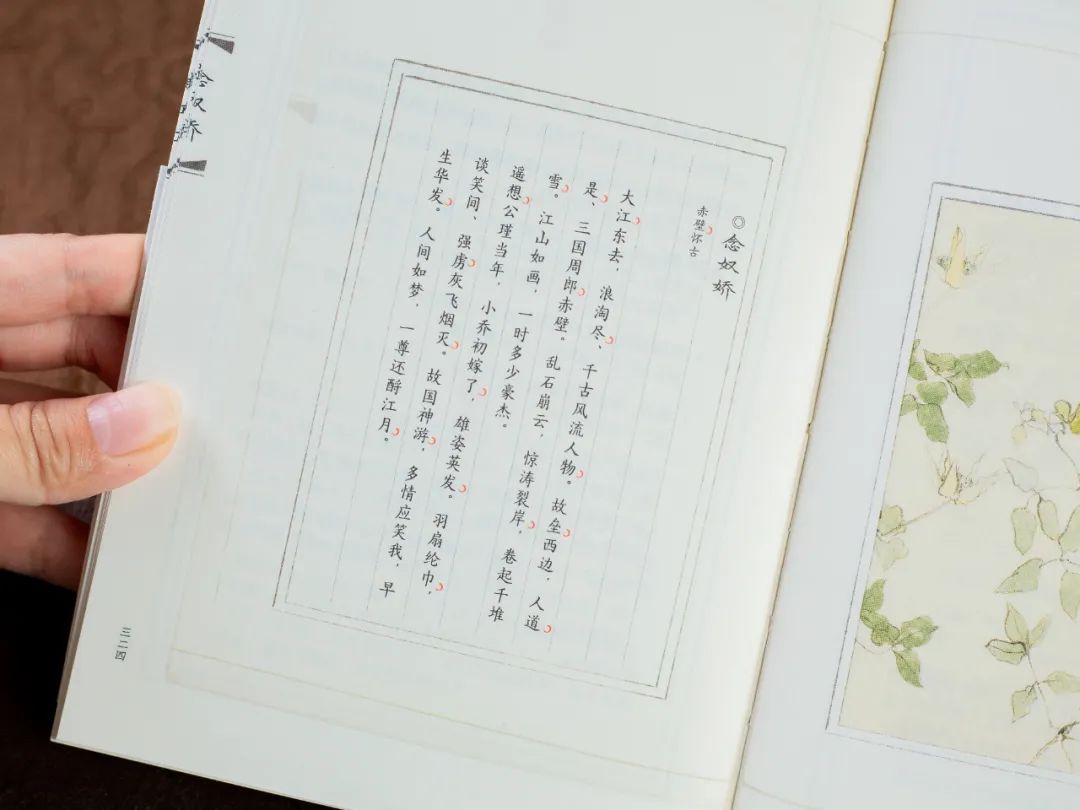 ◎念奴娇
赤壁怀古
大江东去，浪淘尽、千古风流人物。故垒西边，人道
是、三国周郎赤壁。乱石崩云，惊涛裂岸，卷起千堆
雪。江山如画，一时多少豪杰。
遥想公瑾当年，小乔初嫁了，雄姿英发。羽扇纶巾，
谈笑间、强虏灰飞烟灭。故国神游，多情应笑我，早
生华发。人间如梦，一尊还酹江月。
念奴娇
三二四